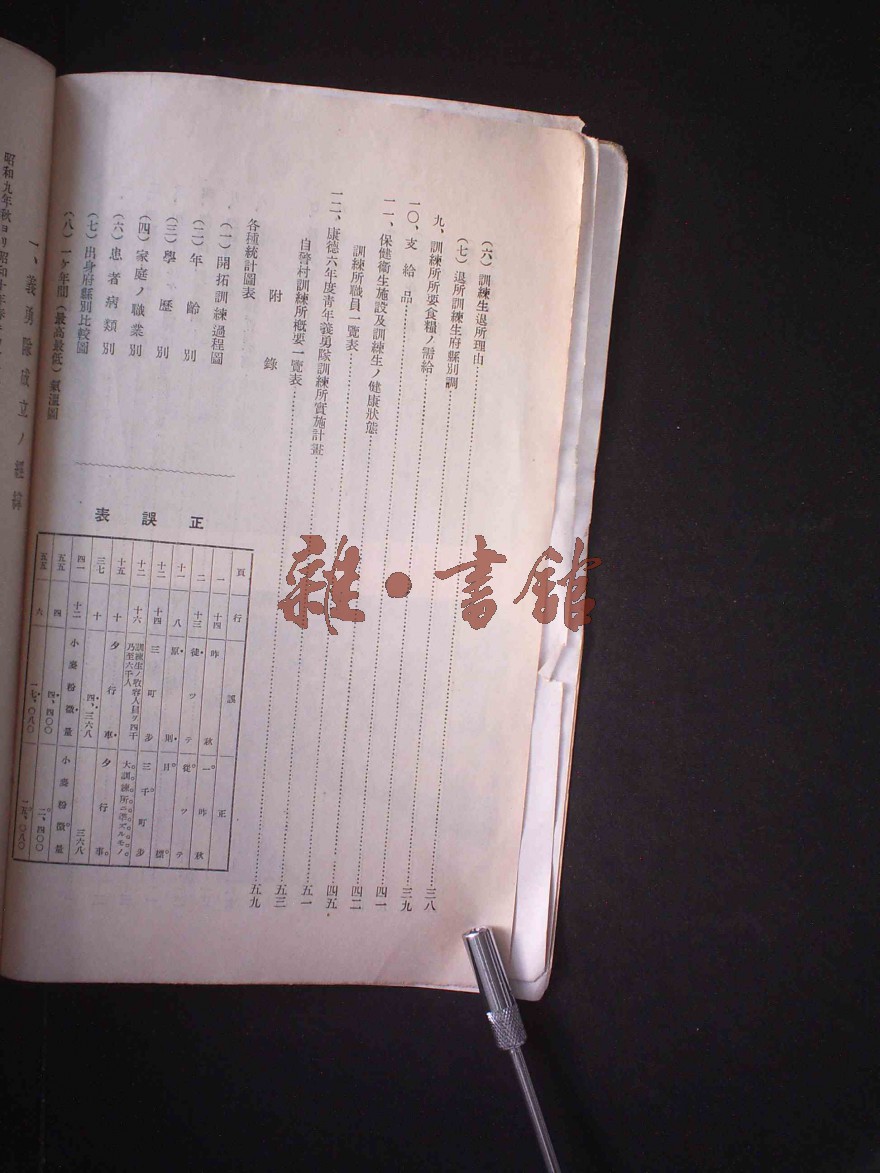 (六) 訓練生退所理由……三八
(七) 退所訓練生府縣別調……三九
九、訓練所所要食糧ノ需給……四一
一〇、支給品……四二
一一、保健衞生施設及訓練生ノ健康狀態……四五
訓練所職員一覽表……五一
一二、康德六年度靑年義勇隊訓練所實施計畫……五三
自警村訓練所槪要一覽表……五九
附錄
各種統計圖表
(一) 開拓訓練過程圖
(二) 年齡別
(三) 學歷別
(四) 家庭ノ職業別
(六) 患者病類別
(七) 出身府縣別比較圖
(八) 一ケ年間(最高最低)氣溫圖
正誤表
頁 行 誤 正
一 十四 昨秋 一昨秋
二 十三 徒ツテ 從ツテ
十一 八 原則 目標
十二 十四 三町步 三千町步
十二 十六 訓練生ノ收容人員ヲ四千乃至六千人 大訓練所ニ準ズルモノ
十五 十 夕行車 夕行事
三七 十 四、三六八 三六八
四一 十二 小麥粉微量 小麥粉徵量
五五 四 四、四〇〇 二、四〇〇
五五 六 一七、〇八〇 一五、〇八〇
一、義勇隊成立ノ經緯
昭和九年秋ヨリ昭和十年春
雜・書館